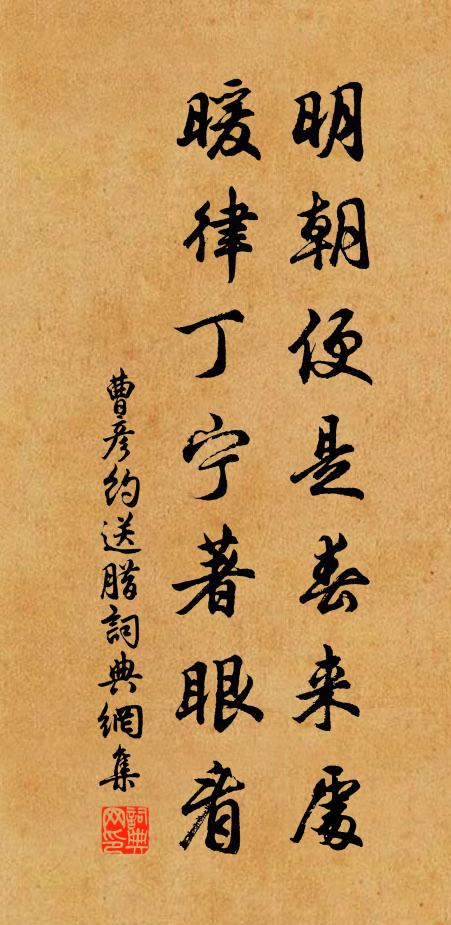 明朝便是春来處
暖律丁宁著眼看
曹彦约送腊詞典網集
詞典网印